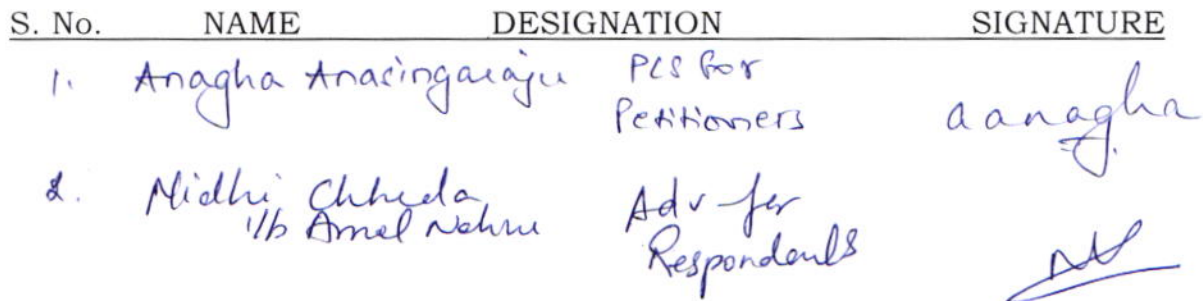 S. No. NAME DESIGNATION SIGNATURE
1. Anagha Anasingaraju PCS for
Petitioners aanagha
2. Nidhi Chheda Adv for
i/b Amol Nehru Respondents